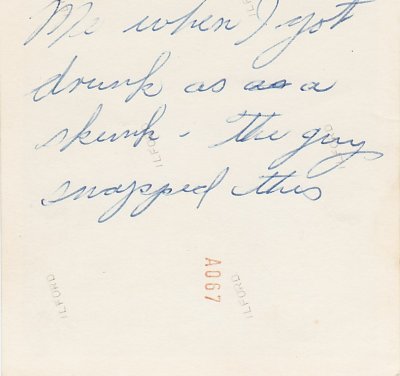 Me when I got
drunk as a a
skunk - the guy
snapped this
ILFORD
ILFORD
A067
ILFORD